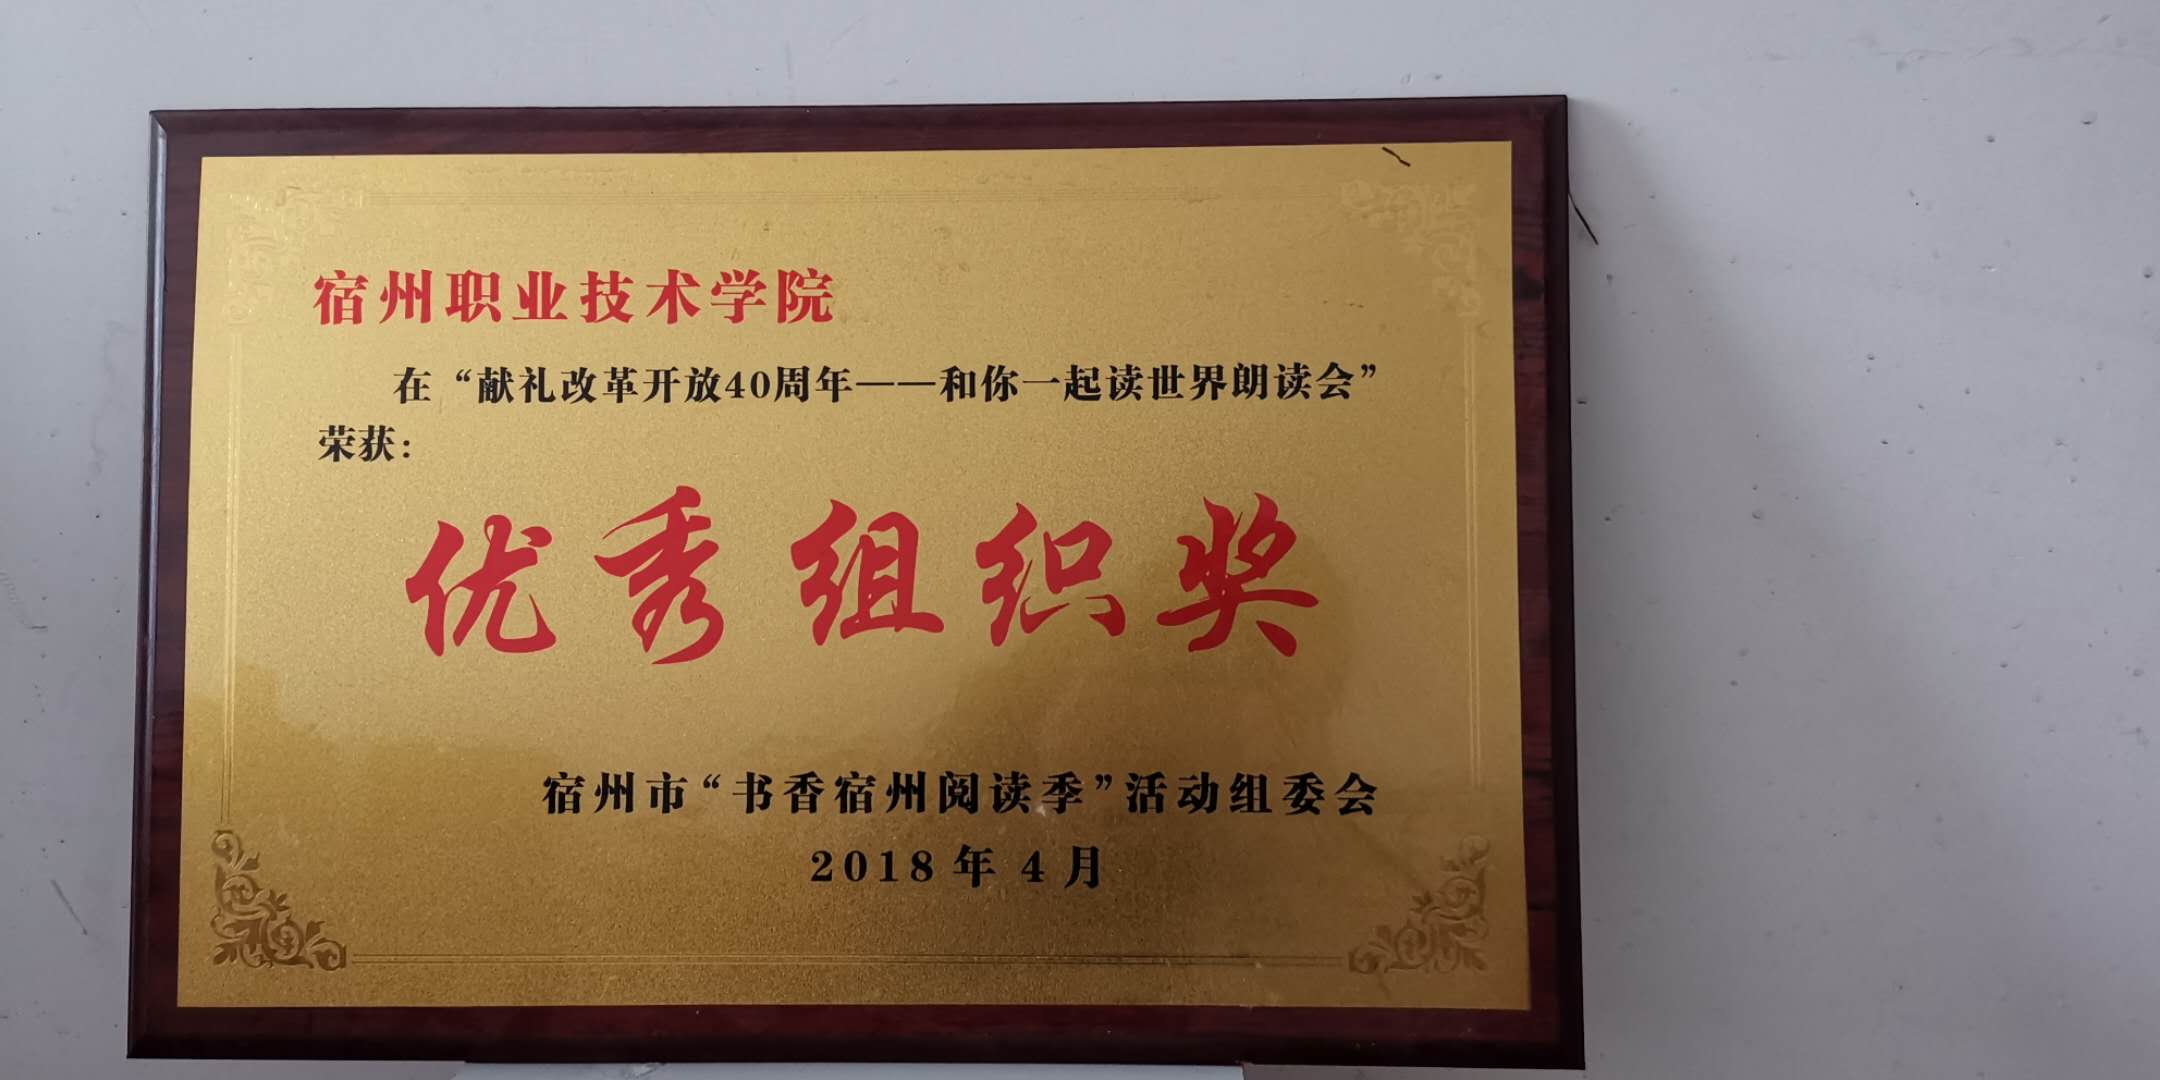 宿州职业技术学院
在“献礼改革开放40周年——和你一起读世界朗读会”
荣获：
优秀组织奖
宿州市“书香宿州阅读季”活动组委会
2018年4月